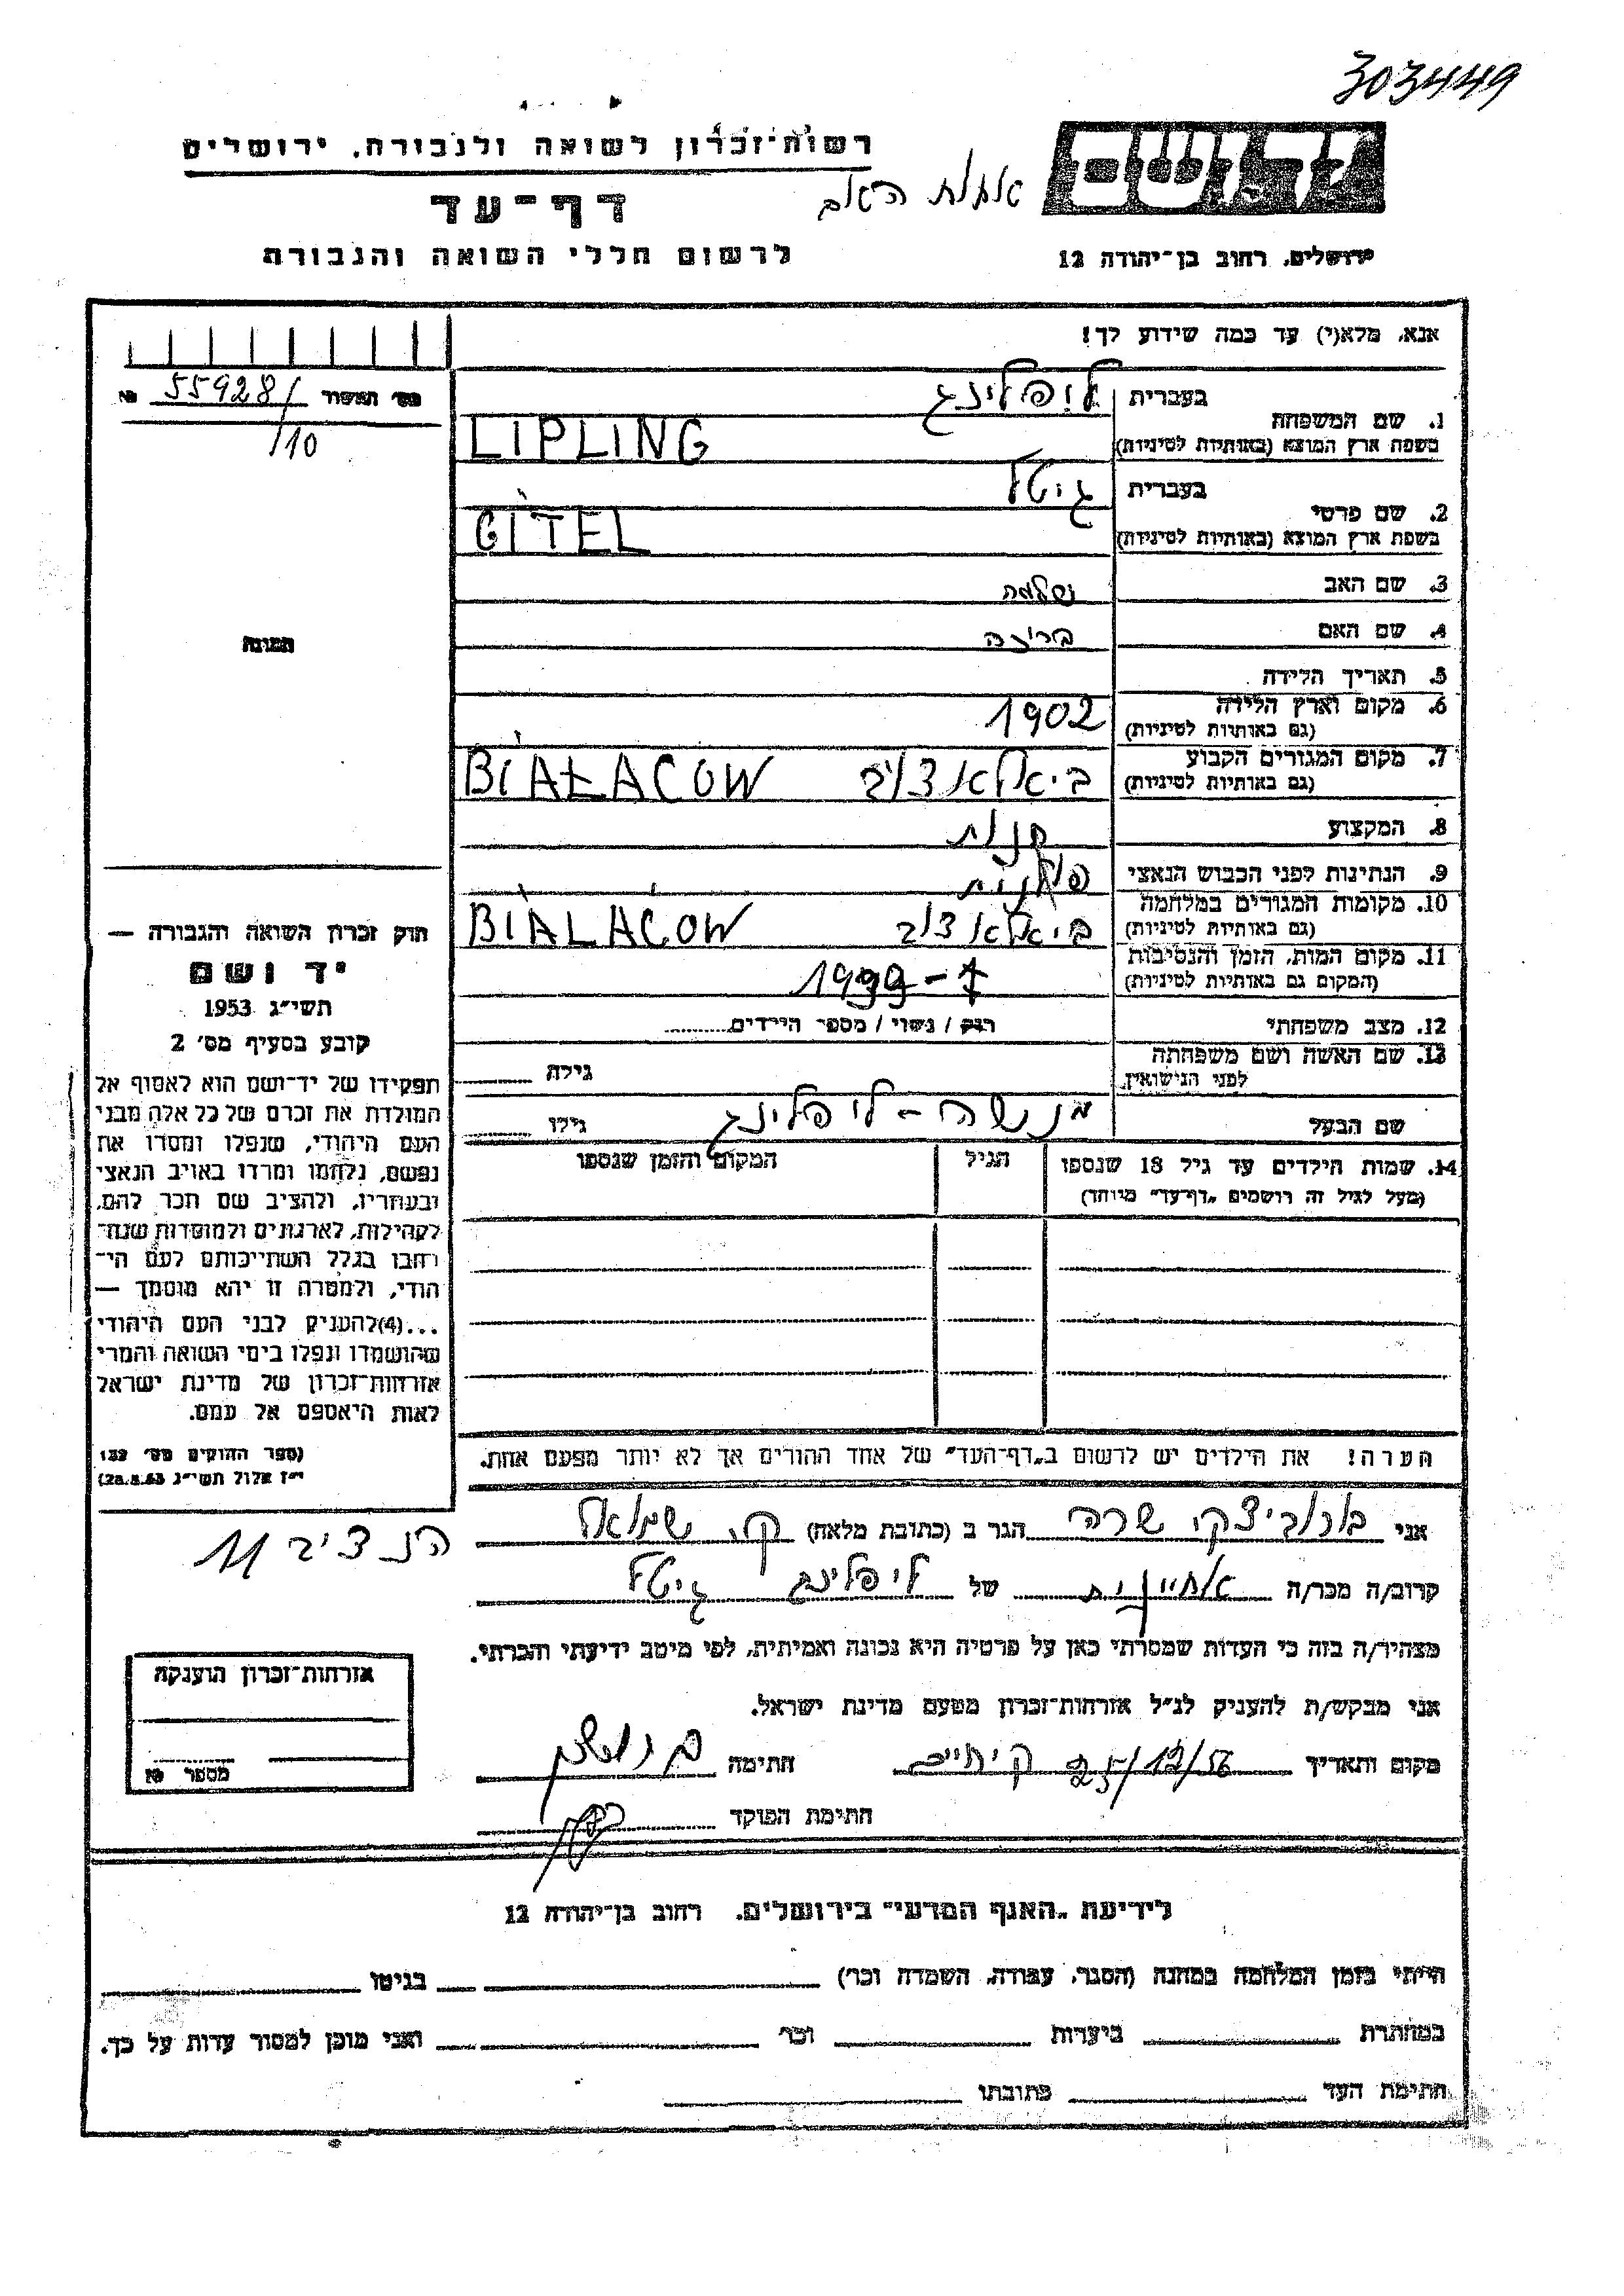 303449
רשות־זכרון לשואה ולגבורה, ירושלים
דף־עד
אחות האב
לרשום חללי השואה והגבורה
יד ושם
ירושלים, רחוב בן־יהודה 12
אנא, מלא(י) עד כמה שידוע לך!
מס׳ תמשור № 55928/
/10
1. שם המשפחה
בעברית ליפלינג
בשפת ארץ המוצא (באותיות לטיניות) LIPLING
2. שם פרטי
בעברית גיטל
בשפת ארץ המוצא (באותיות לטיניות) GITEL
3. שם האב שלמה
4. שם האם
5. תאריך הלידה
6. מקום וארץ הלידה
(גם באותיות לטיניות) 1902
7. מקום המגורים הקבוע
(גם באותיות לטיניות) ביאלאצוב BIAŁACOW
8. המקצוע
9. הנתינות לפני הכבוש הנאצי פולנית
10. מקומות המגורים במלחמה
(גם באותיות לטיניות) ביאלאצוב BIALACOW
11. מקום המות, הזמן והנסיבות
(המקום גם באותיות לטיניות)
12. מצב משפחתי רווק / נשוי / מספר הילדים
13. שם האשה ושם משפחתה
לפני הנישואין גילה
שם הבעל מנשה - ליפלינג גילו
14. שמות הילדים עד גיל 18 שנספו
(מעל לגיל זה רושמים „דף־עד” מיוחד)
הגיל
המקום והזמן שנספו
הערה! את הילדים יש לרשום ב„דף־העד” של אחד ההורים אך לא יותר מפעם אחת.
תמונה
חוק זכרון השואה והגבורה —
יד ושם
תשי״ג 1953
קובע בסעיף מס׳ 2
תפקידו של יד־ושם הוא לאסוף אל
המולדת את זכרם של כל אלה מבני
העם היהודי, שנפלו ומסרו את
נפשם, נלחמו ומרדו באויב הנאצי
ובעוזריו, ולהציב שם וזכר להם,
לקהילות, לארגונים ולמוסדות שנח־
רבו בגלל השתייכותם לעם הי־
הודי, ולמטרה זו יהא מוסמך —
...(4)להעניק לבני העם היהודי
שהושמדו ונפלו בימי השואה והמרי
אזרחות־זכרון של מדינת ישראל
לאות היאספם אל עמם.
(ספר החוקים מס׳ 132
י״ז אלול תשי״ג 28.8.53)
אני שרה הגר ב (כתובת מלאה) ק. שמואל
הנציב 11
קרוב/ה מכר/ה אחיינית של ליפלינג גיטל
מצהיר/ה בזה כי העדות שמסרתי כאן על פרטיה היא נכונה ואמיתית, לפי מיטב ידיעתי והכרתי.
אני מבקש/ת להעניק לנ״ל אזרחות־זכרון מטעם מדינת ישראל.
מקום ותאריך 25/12/56 חתימה
חתימת הפוקד
אזרחות־זכרון הוענקה
מספר №
לידיעת „האגף המדעי” בירושלים, רחוב בן־יהודה 12
הייתי בזמן המלחמה במחנה (הסגר, עבודה, השמדה וכו׳) בגיטו
במחתרת ביערות וכו׳ ואני מוכן למסור עדות על כך.
חתימת העד כתובתו